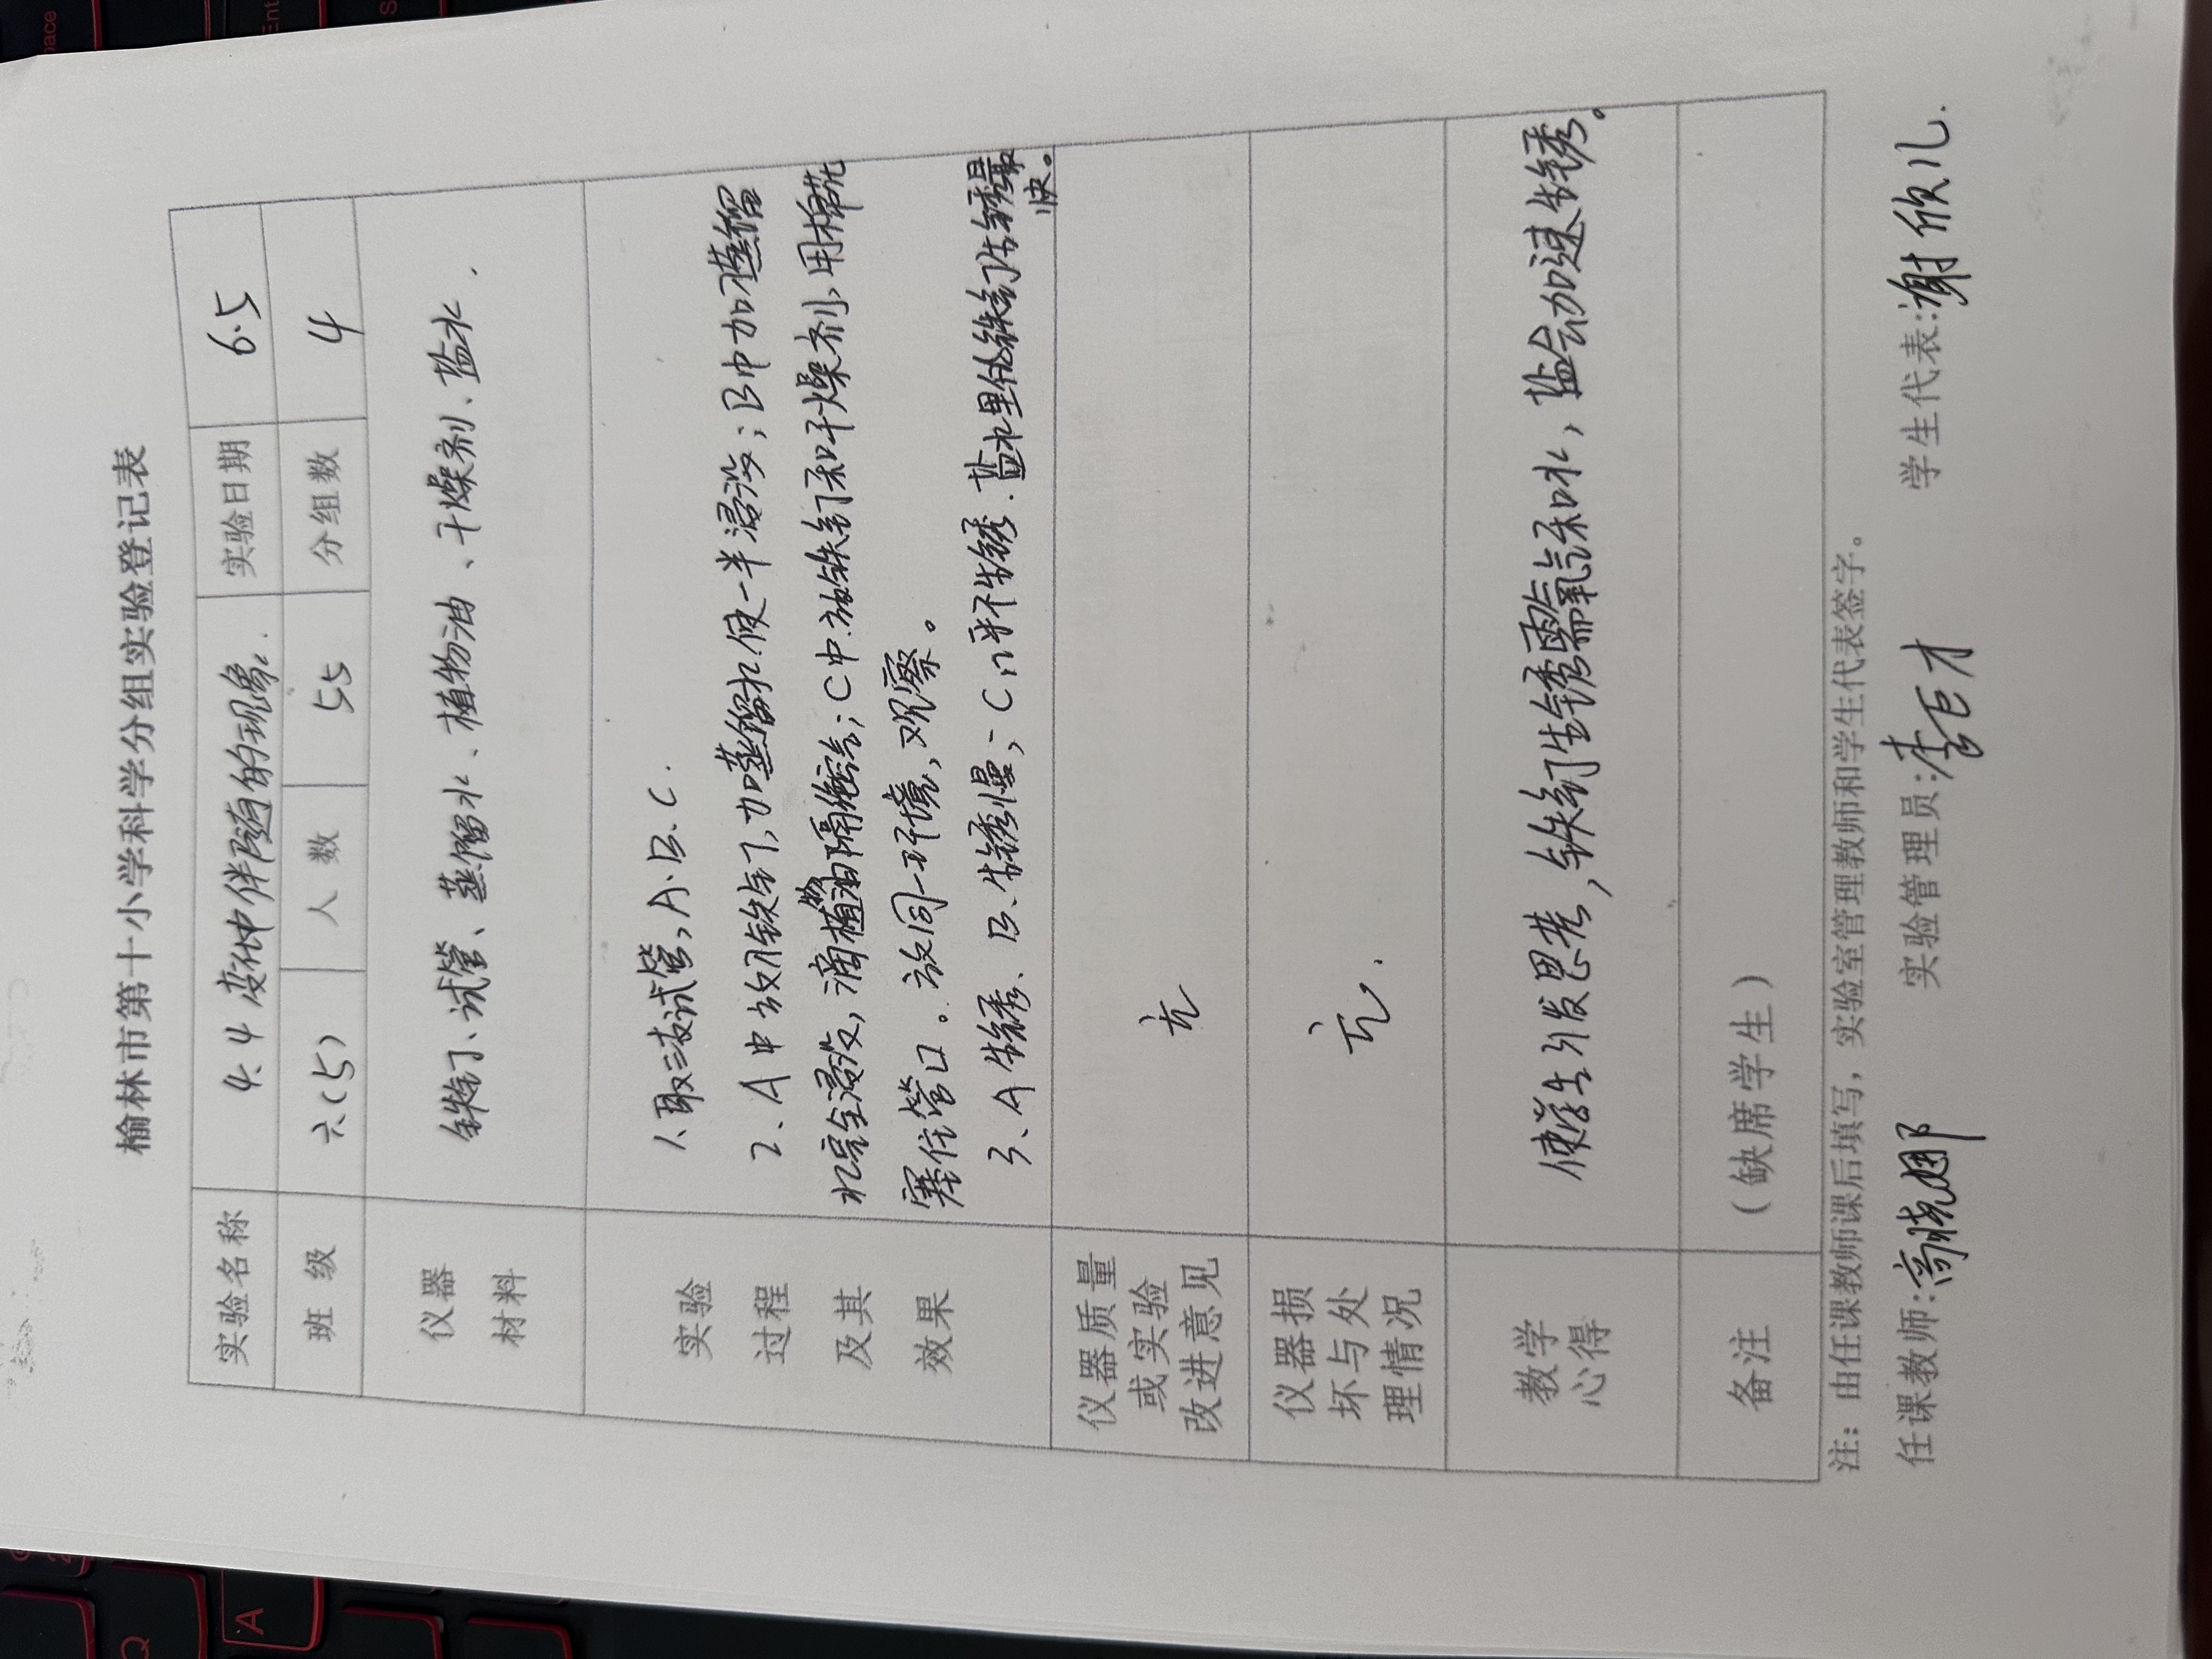 榆林市第十小学科学分组实验登记表
实验名称 4.4 变化中伴随的现象. 实验日期 6.5
班 级 六(5) 人 数 55 分组数 4
仪器
材料
铁钉、试管、蒸馏水、植物油、干燥剂、盐水.
实验
过程
及其
效果
1.取三支试管,A.B.C.
2、A中放用铁钉,加蒸馏水使一半浸没;B中加蒸馏
水完全浸没,滴植物油隔绝空气;C中放铁钉和干燥剂,用棉花
塞住管口。放同一环境,观察。
3、A生锈、B.生锈慢;C几乎不生锈.盐水里的铁钉生锈最
快。
仪器质量
或实验
改进意见
无
仪器损
坏与处
理情况
无.
教学
心得
使学生引发思考,铁钉生锈需氧气和水,盐会加速生锈。
备注 (缺席学生)
注:由任课教师课后填写,实验室管理教师和学生代表签字。
任课教师:高晓娜 实验管理员:李巨才 学生代表:谢欣儿.
A
Q